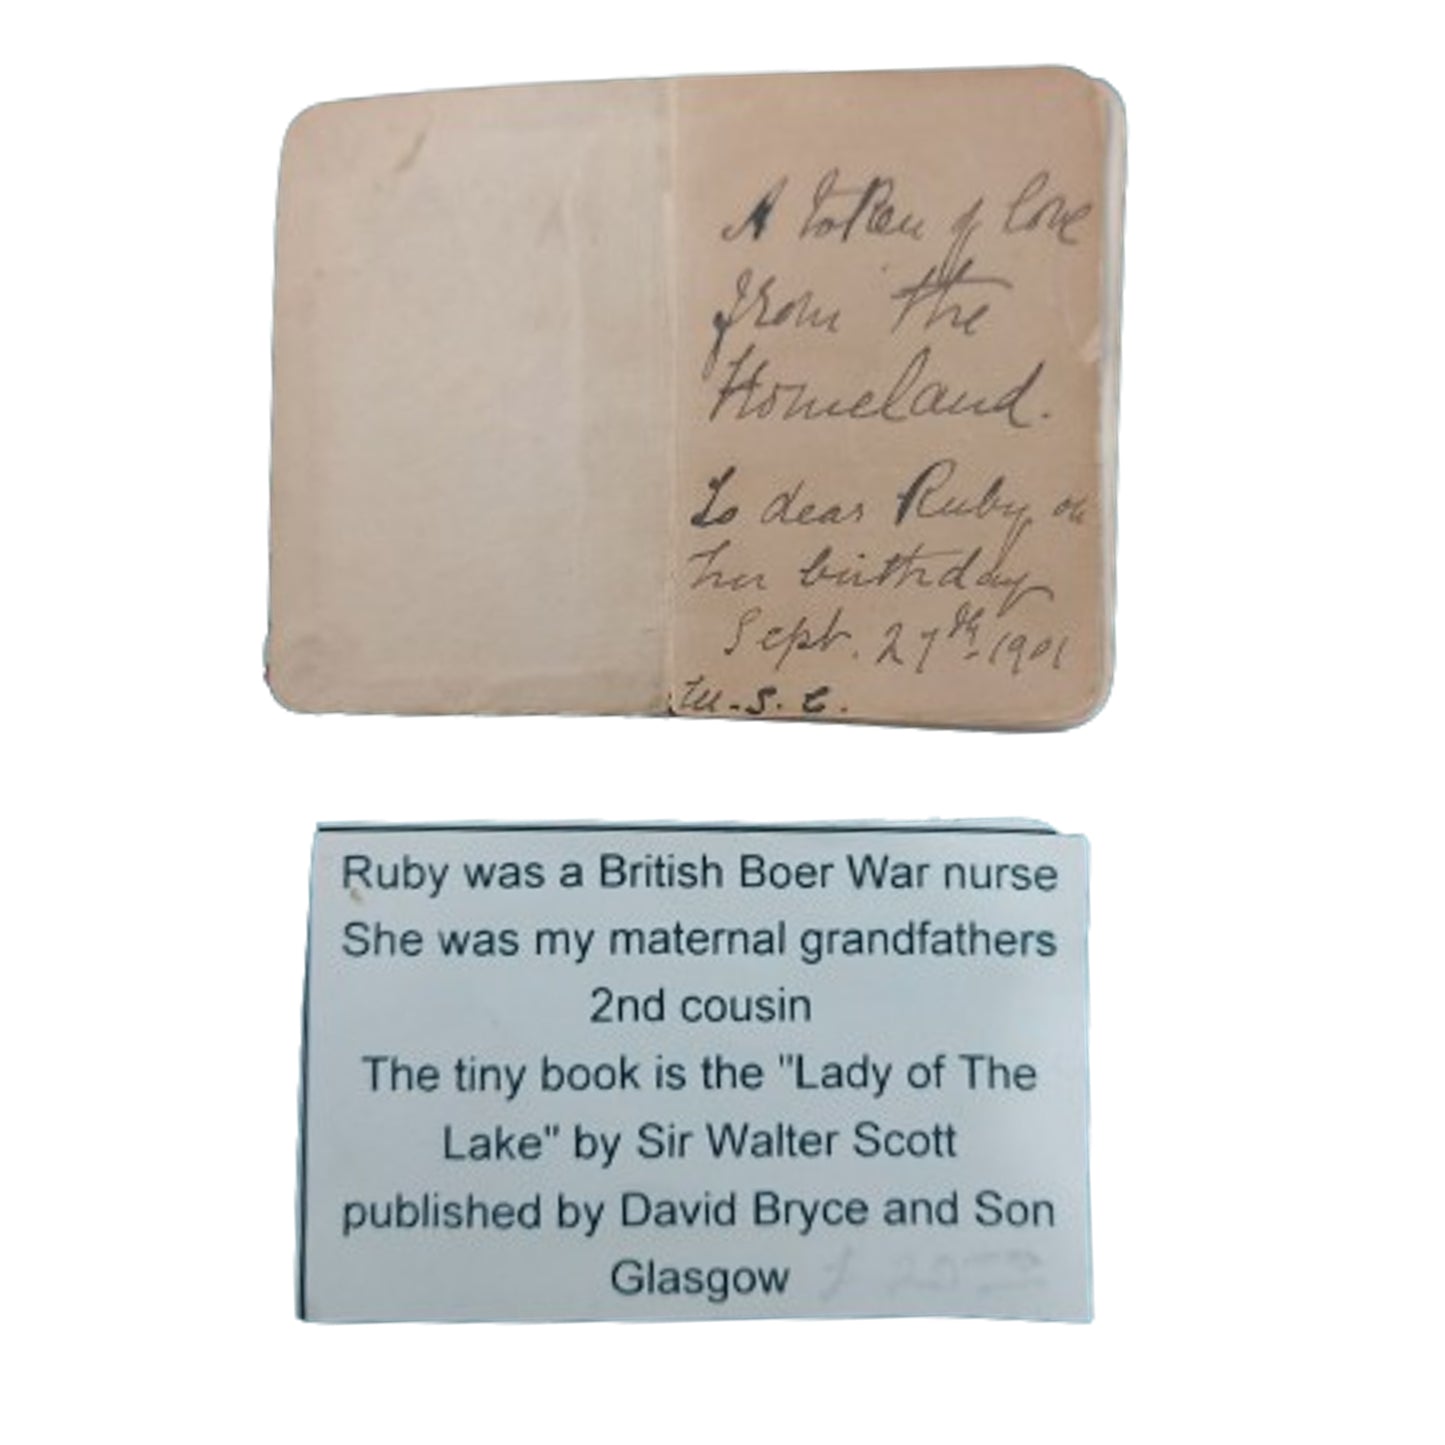 A token of love
from the
Homeland.
To dear Ruby on
her birthday
Sept. 27th 1901
S. C.
Ruby was a British Boer War nurse
She was my maternal grandfathers
2nd cousin
The tiny book is the "Lady of The
Lake" by Sir Walter Scott
published by David Bryce and Son
Glasgow